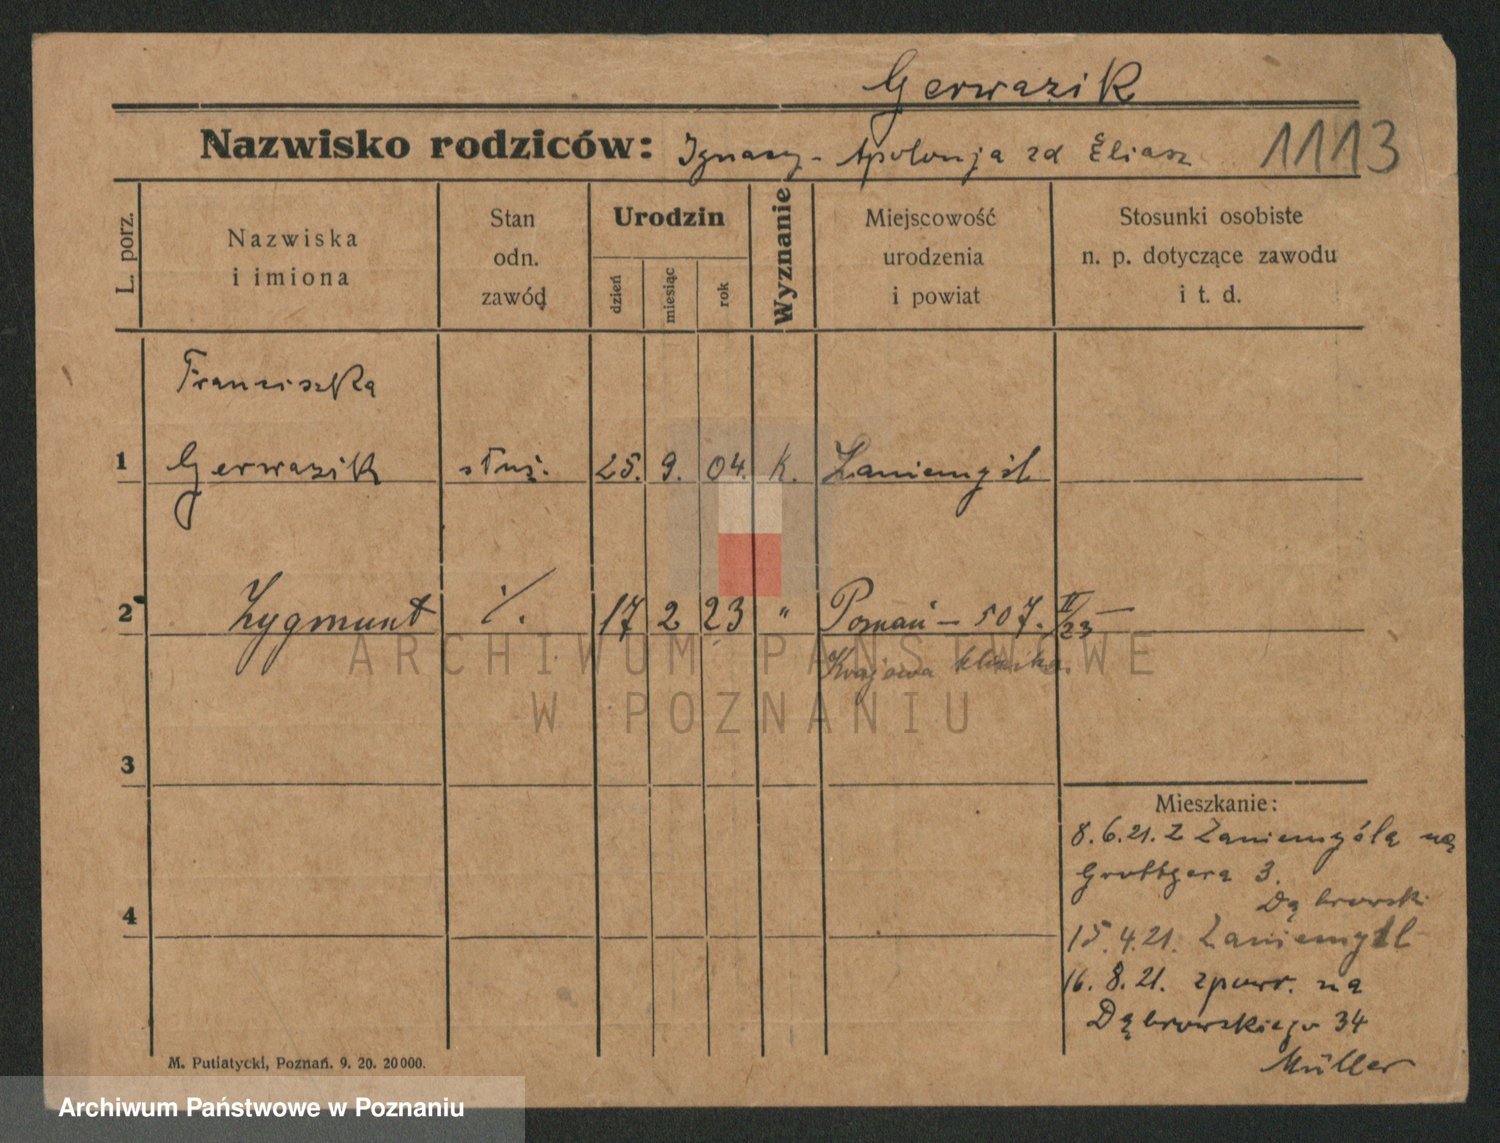 Gerwazik
Nazwisko rodziców: Ignacy - Apolonja zd Eliasz 1113
L. porz.
Nazwiska
i imiona
Stan
odn.
zawód
Urodzin
dzień
miesiąc
rok
Wyznanie
Miejscowość
urodzenia
i powiat
Stosunki osobiste
n. p. dotyczące zawodu
i t. d.
Franciszka
1 Gerwazik służ. 25. 9. 04. k. Zaniemyśl
2 Zygmunt %. 17 2 23 " Poznań – 507. II/23 –
Krajowa klinika.
3
Mieszkanie:
8.6.21. z Zaniemyśla na
Grottgera 3.
Dąbrowski
4
15.4.21. Zaniemyśl
16.8.21. zpowr. na
Dąbrowskiego 34
Müller
M. Putiatycki, Poznań. 9. 20. 20000.
ARCHIWUM PAŃSTWOWE
W POZNANIU
Archiwum Państwowe w Poznaniu